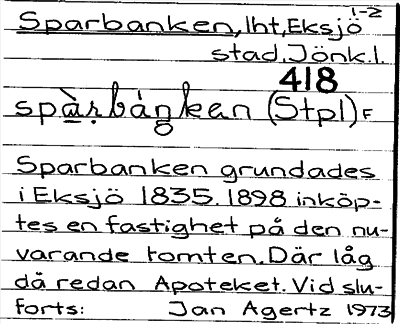 1-2
Sparbanken, lht, Eksjö
stad, Jönk.l.
418
spàrbáŋken (Stpl) F
Sparbanken grundades
i Eksjö 1835. 1898 inköp-
tes en fastighet på den nu-
varande tomten. Där låg
då redan Apoteket. Vid slu-
forts: Jan Agertz 1973